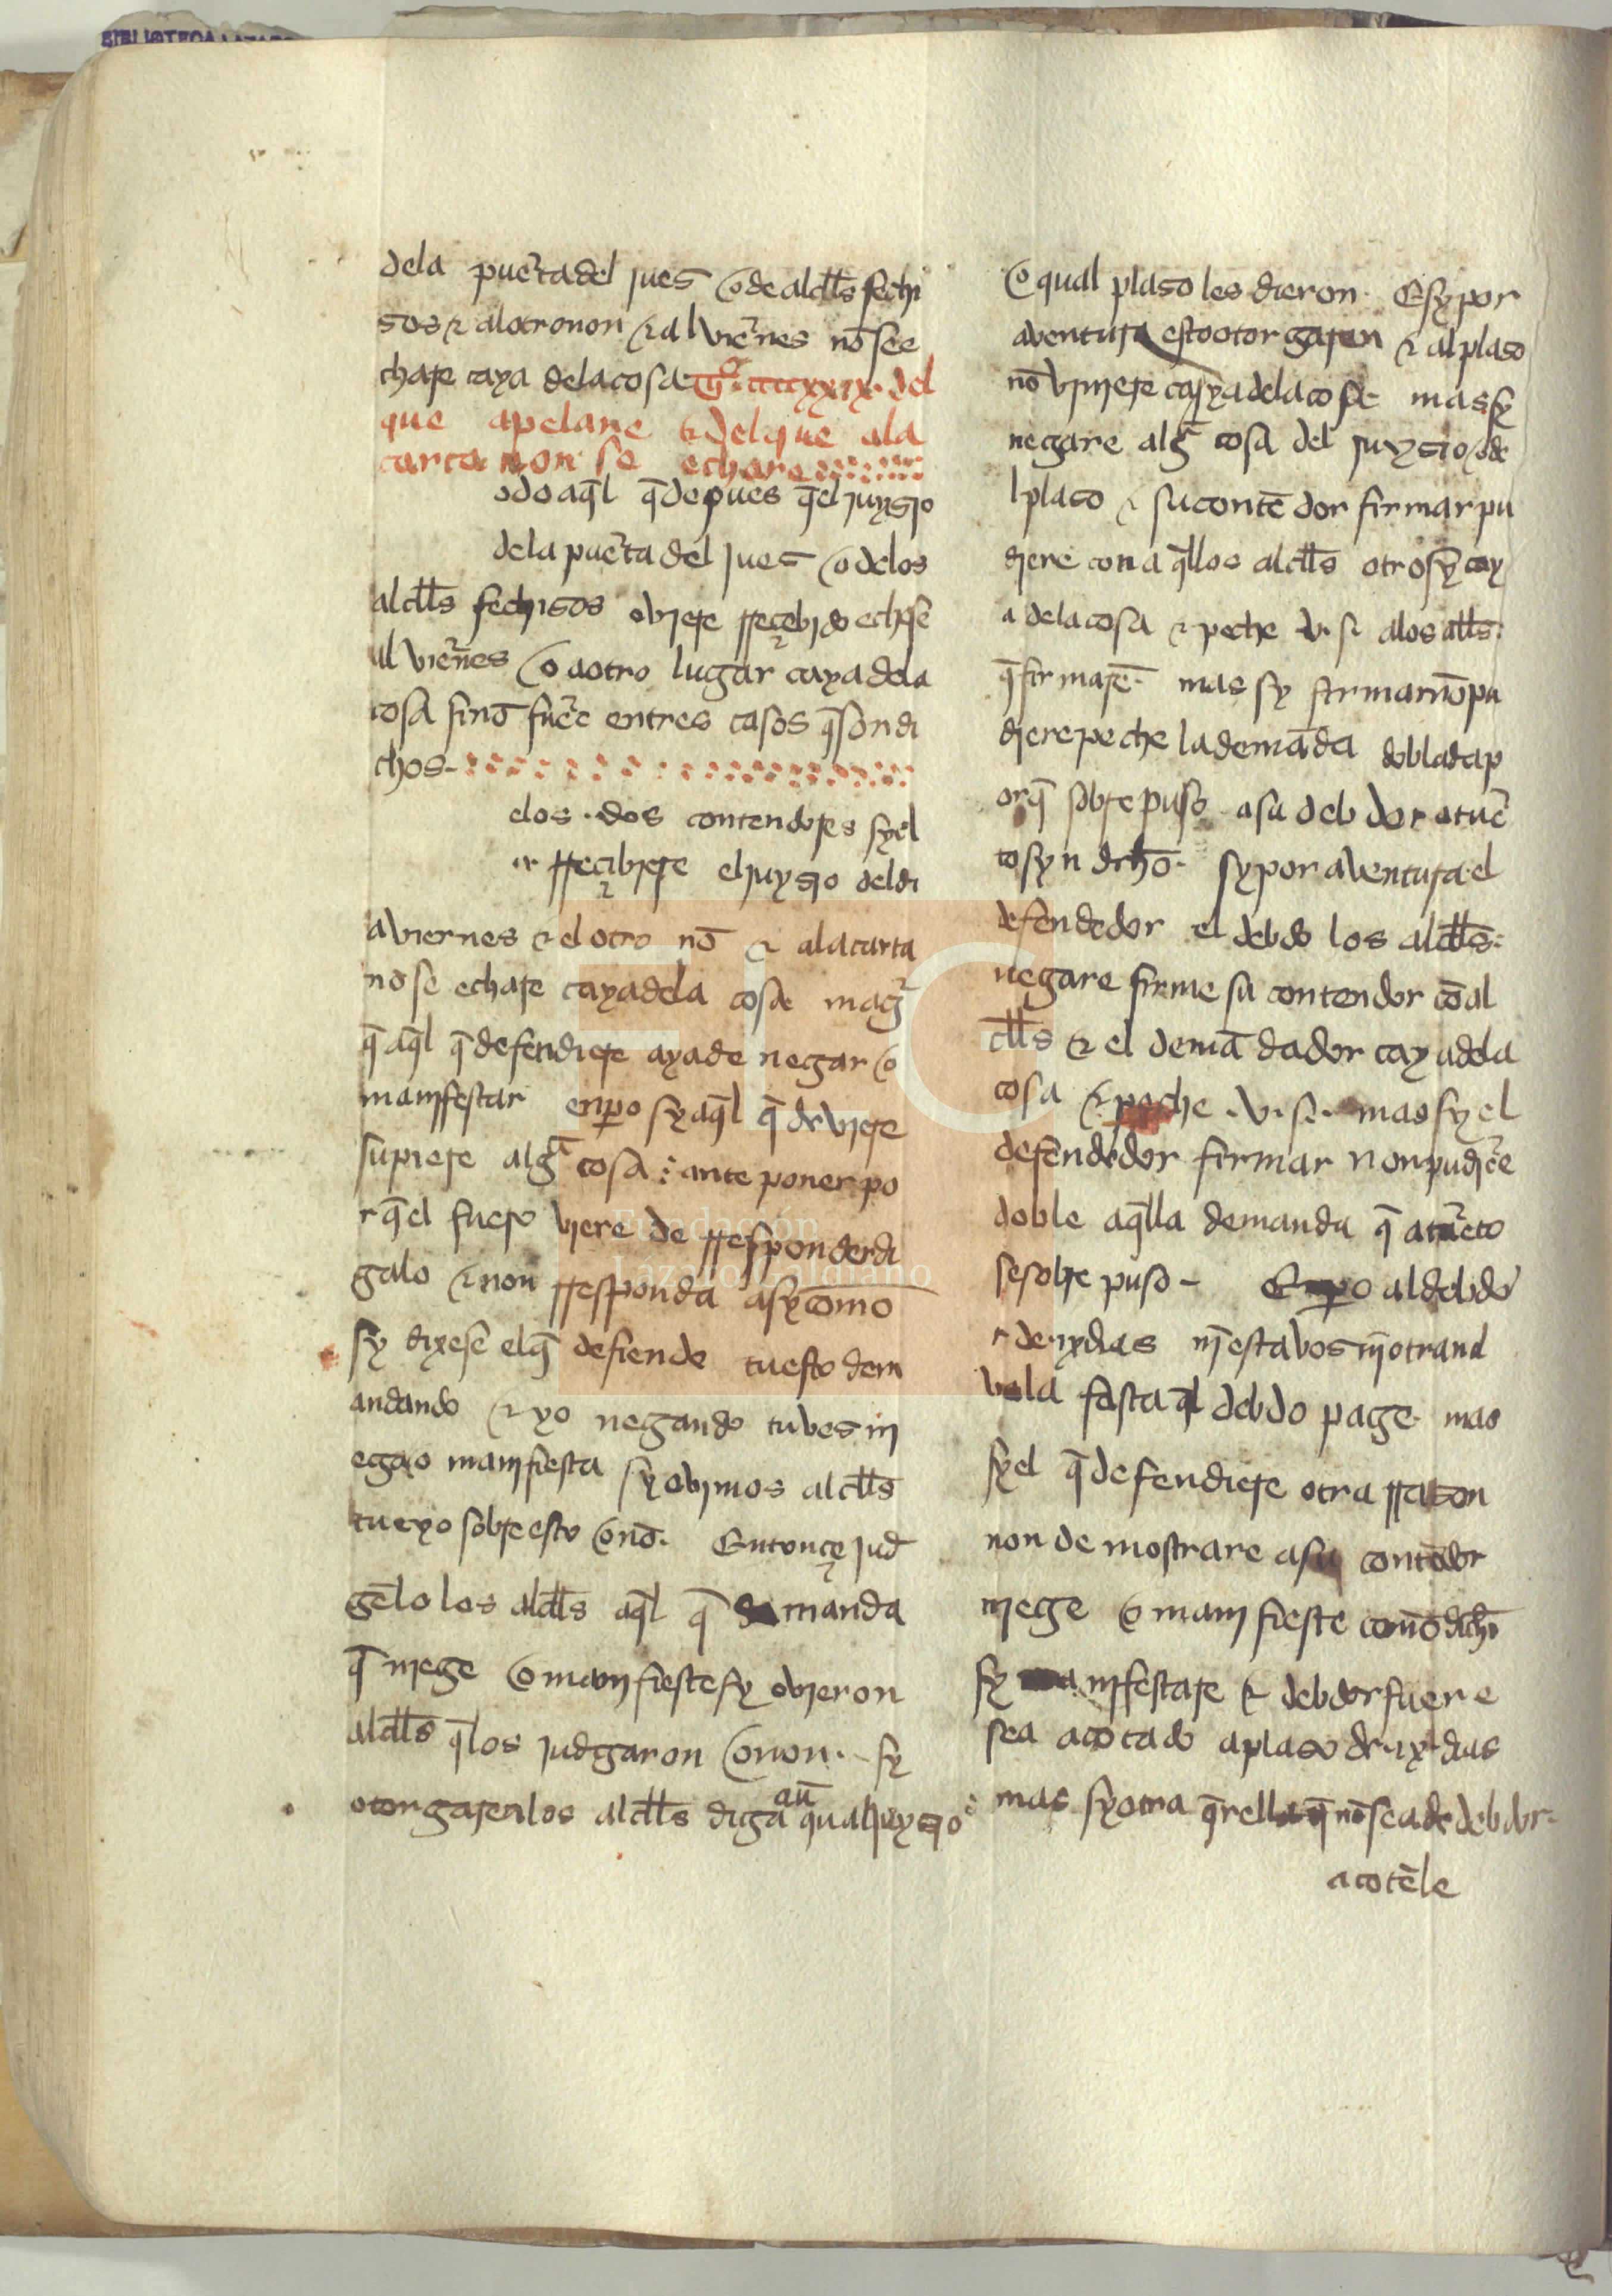 BIBLIOTECA LAZARO
dela puerta del jues o de alcl̄ls fechi
sos & al otro non & al viernes nō se e
chare caya dela cosa. tº. ccccxxix. del
que apelare & del que ala
carta non se echare
odo aq̄l q̄ depues q̄l juysio
dela puerta del jues o delos
alcl̄ls fechisos oviere rreçebido echese
al viernes o a otro lugar caya dela
cosa sinō fuere en tres casos q̄ son di
chos.
elos. dos contendores sy el
rreçibiere el juysio del di
a viernes & el otro nō & ala carta
nō se echare caya dela cosa maḡ
q̄ aq̄l q̄ defendiere aya de negar o
manifestar enp̄o sy aq̄l q̄
supiere alḡ cosa ante poner po
r q̄l fuero viere de rresponder di
galo & non rresponda asy comō
sy dixese el q̄ defiende tu esto dem
andando & yo negando tu ves ni
ega o manifiesta sy ovimos alcl̄ls
tu e yo sobre esto o nō. Entonçe jud
gēlo los alcl̄ls aq̄l q̄ demanda
q̄ niege o manifieste sy ovieron
alcl̄ls q̄ los judgaron o non. sy
otorgaren los alcl̄ls digā aū qual juysio
o qual plaso les dieron. E sy por
aventura esto otorgaren & al plaso
nō viniere caya dela cosa mas sy
negare alḡ cosa del juysio o de
l plaso & su contēdor firmar pu
diere con aq̄llos alcl̄ls otrosy cay
a dela cosa & peche .v. s. alos alcl̄ls
q̄ firmarē. mas sy firmar nō pu
diere peche la demāda doblada p
orq̄ sobrepuso a su debdor a tuer
to syn dr̄cho. sy por aventura el
defendedor el debdo los alcl̄ls
negare firme su contendor cō al
cl̄ls & el demādador caya dela
cosa & peche .v. s. mas sy el
defendedor firmar non pudiere
doble aq̄lla demanda q̄ a tuerto
se sobrepuso - Enp̄o al debdo
r de .ix. dias
vola fasta q̄l debdo page. mas
sy el q̄ defendiere otra rrason
non demostrare a su contēdor
niege o manifieste comō dicho
sy manifestare & debdor fuere
sea acotado a plaso de .ix. dias
mas sy otra q̄rella q̄ nō sea de debdor
acotēle
FLG
Fundación
Lázaro Galdiano